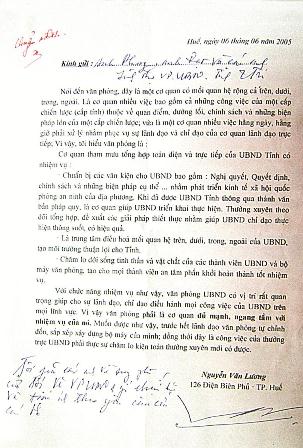 Huế, ngày 06 tháng 06 năm 2005
Kính gửi:
Nói đến văn phòng, đây là một cơ quan có mối quan hệ rộng cả trên, dưới,
trong, ngoài. Là cơ quan nhiều việc bao gồm cả những công việc của một cấp
chiến lược (cấp tỉnh) thuộc về quan điểm, đường lối, chính sách và những biện
pháp lớn của một cấp chiến lược; vừa là cơ quan nhiều việc hằng ngày, hằng
giờ phải xử lý nhằm phục vụ sự lãnh đạo và chỉ đạo của cơ quan lãnh đạo trực
tiếp; Vì vậy, tôi hiểu văn phòng là:
Cơ quan tham mưu tổng hợp toàn diện và trực tiếp của UBND Tỉnh có
nhiệm vụ:
- Chuẩn bị các văn kiện cho UBND bao gồm: Nghị quyết, Quyết định,
Chính sách và những biện pháp cụ thể ... nhằm phát triển kinh tế xã hội quốc
phòng an ninh của địa phương. Khi đã được UBND Tỉnh thông qua thành văn
bản pháp quy, là cơ quan giúp UBND triển khai thực hiện. Thường xuyên theo
dõi tổng hợp, đề xuất các giải pháp thiết thực nhằm giúp UBND chỉ đạo thực hiện
thông suốt, có hiệu quả.
- Là trung tâm điều hoà mối quan hệ trên, dưới, trong, ngoài của UBND,
tạo môi trường thuận lợi cho Tỉnh.
- Chăm lo đời sống tinh thần và vật chất của các thành viên UBND và bộ
máy văn phòng, tạo cho mọi thành viên an tâm phấn khởi hoàn thành tốt nhiệm
vụ.
Với chức năng nhiệm vụ như vậy, văn phòng UBND có vị trí rất quan
trọng giúp cho sự lãnh đạo, chỉ đạo điều hành mọi công việc của UBND trên
mọi lĩnh vực. Vì vậy văn phòng phải là cơ quan đủ mạnh, ngang tầm với
nhiệm vụ của nó. Muốn được như vậy, trước hết lãnh đạo văn phòng tự chỉnh
đốn, sắp xếp xây dựng bộ máy của mình; đồng thời đây là công việc của thường
trực UBND phải thực sự chăm lo kiện toàn thường xuyên mới có được.
Nguyễn Văn Lương
126 Điện Biên Phủ - TP. Huế